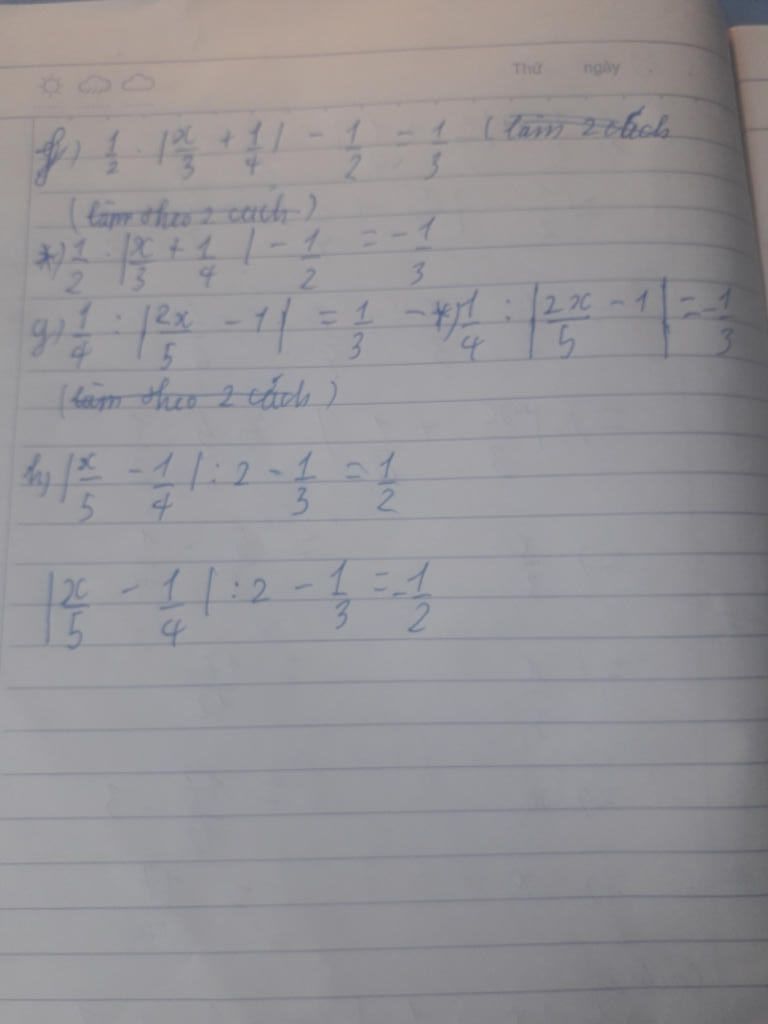 Thứ ngày
f) 1/2 . |x/3 + 1/4| - 1/2 = 1/3 (làm 2 cách
(làm theo 2 cách)
*) 1/2 . |x/3 + 1/4| - 1/2 = -1/3
g) 1/4 : |2x/5 - 1| = 1/3 - *) 1/4 : |2x/5 - 1| = -1/3
(làm theo 2 cách)
h) |x/5 - 1/4| : 2 - 1/3 = 1/2
|x/5 - 1/4| : 2 - 1/3 = -1/2